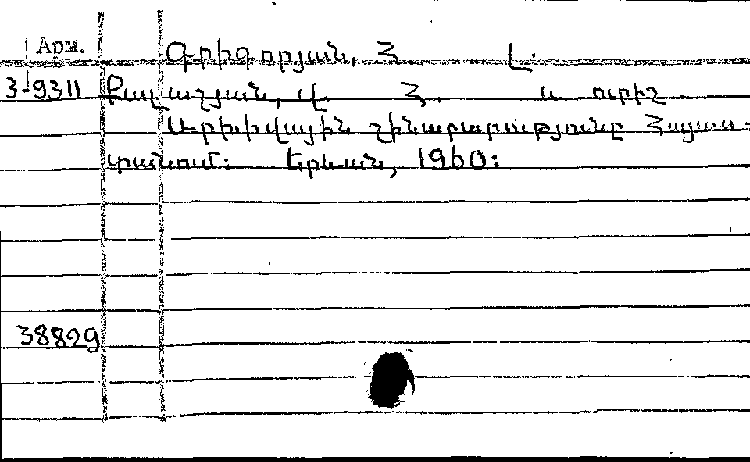 Арм. Գրիգորյան, Հ. Լ.
3-9311 Քալաշյան, Վ. Հ. և ուրիշ
Արխիվային շինարարությունը Հայաս-
տանում: Երևան, 1960:
38829